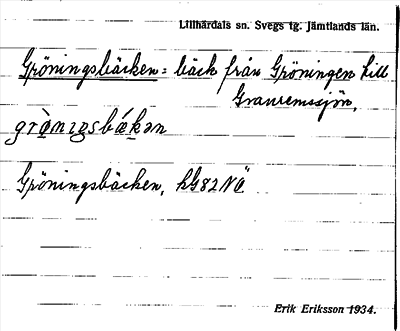 Lillhärdals sn. Svegs tg. Jämtlands län.
Gröningsbäcken: bäck från Gröningen till
Granremssjön,
Gröningsbäcken, kG82NÖ
Erik Eriksson 1934.